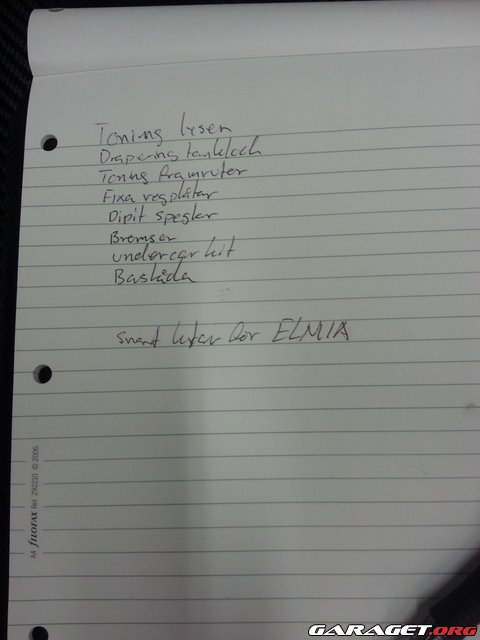 Toning lysen
Drapering tanklock
Toning framrutor
Fixa regplåtar
Dipit speglar
Bremser
undercar kit
Baslåda
snart ELMIA
A4 FILOFAX Ref. 292210 © 2006.
GARAGET.ORG